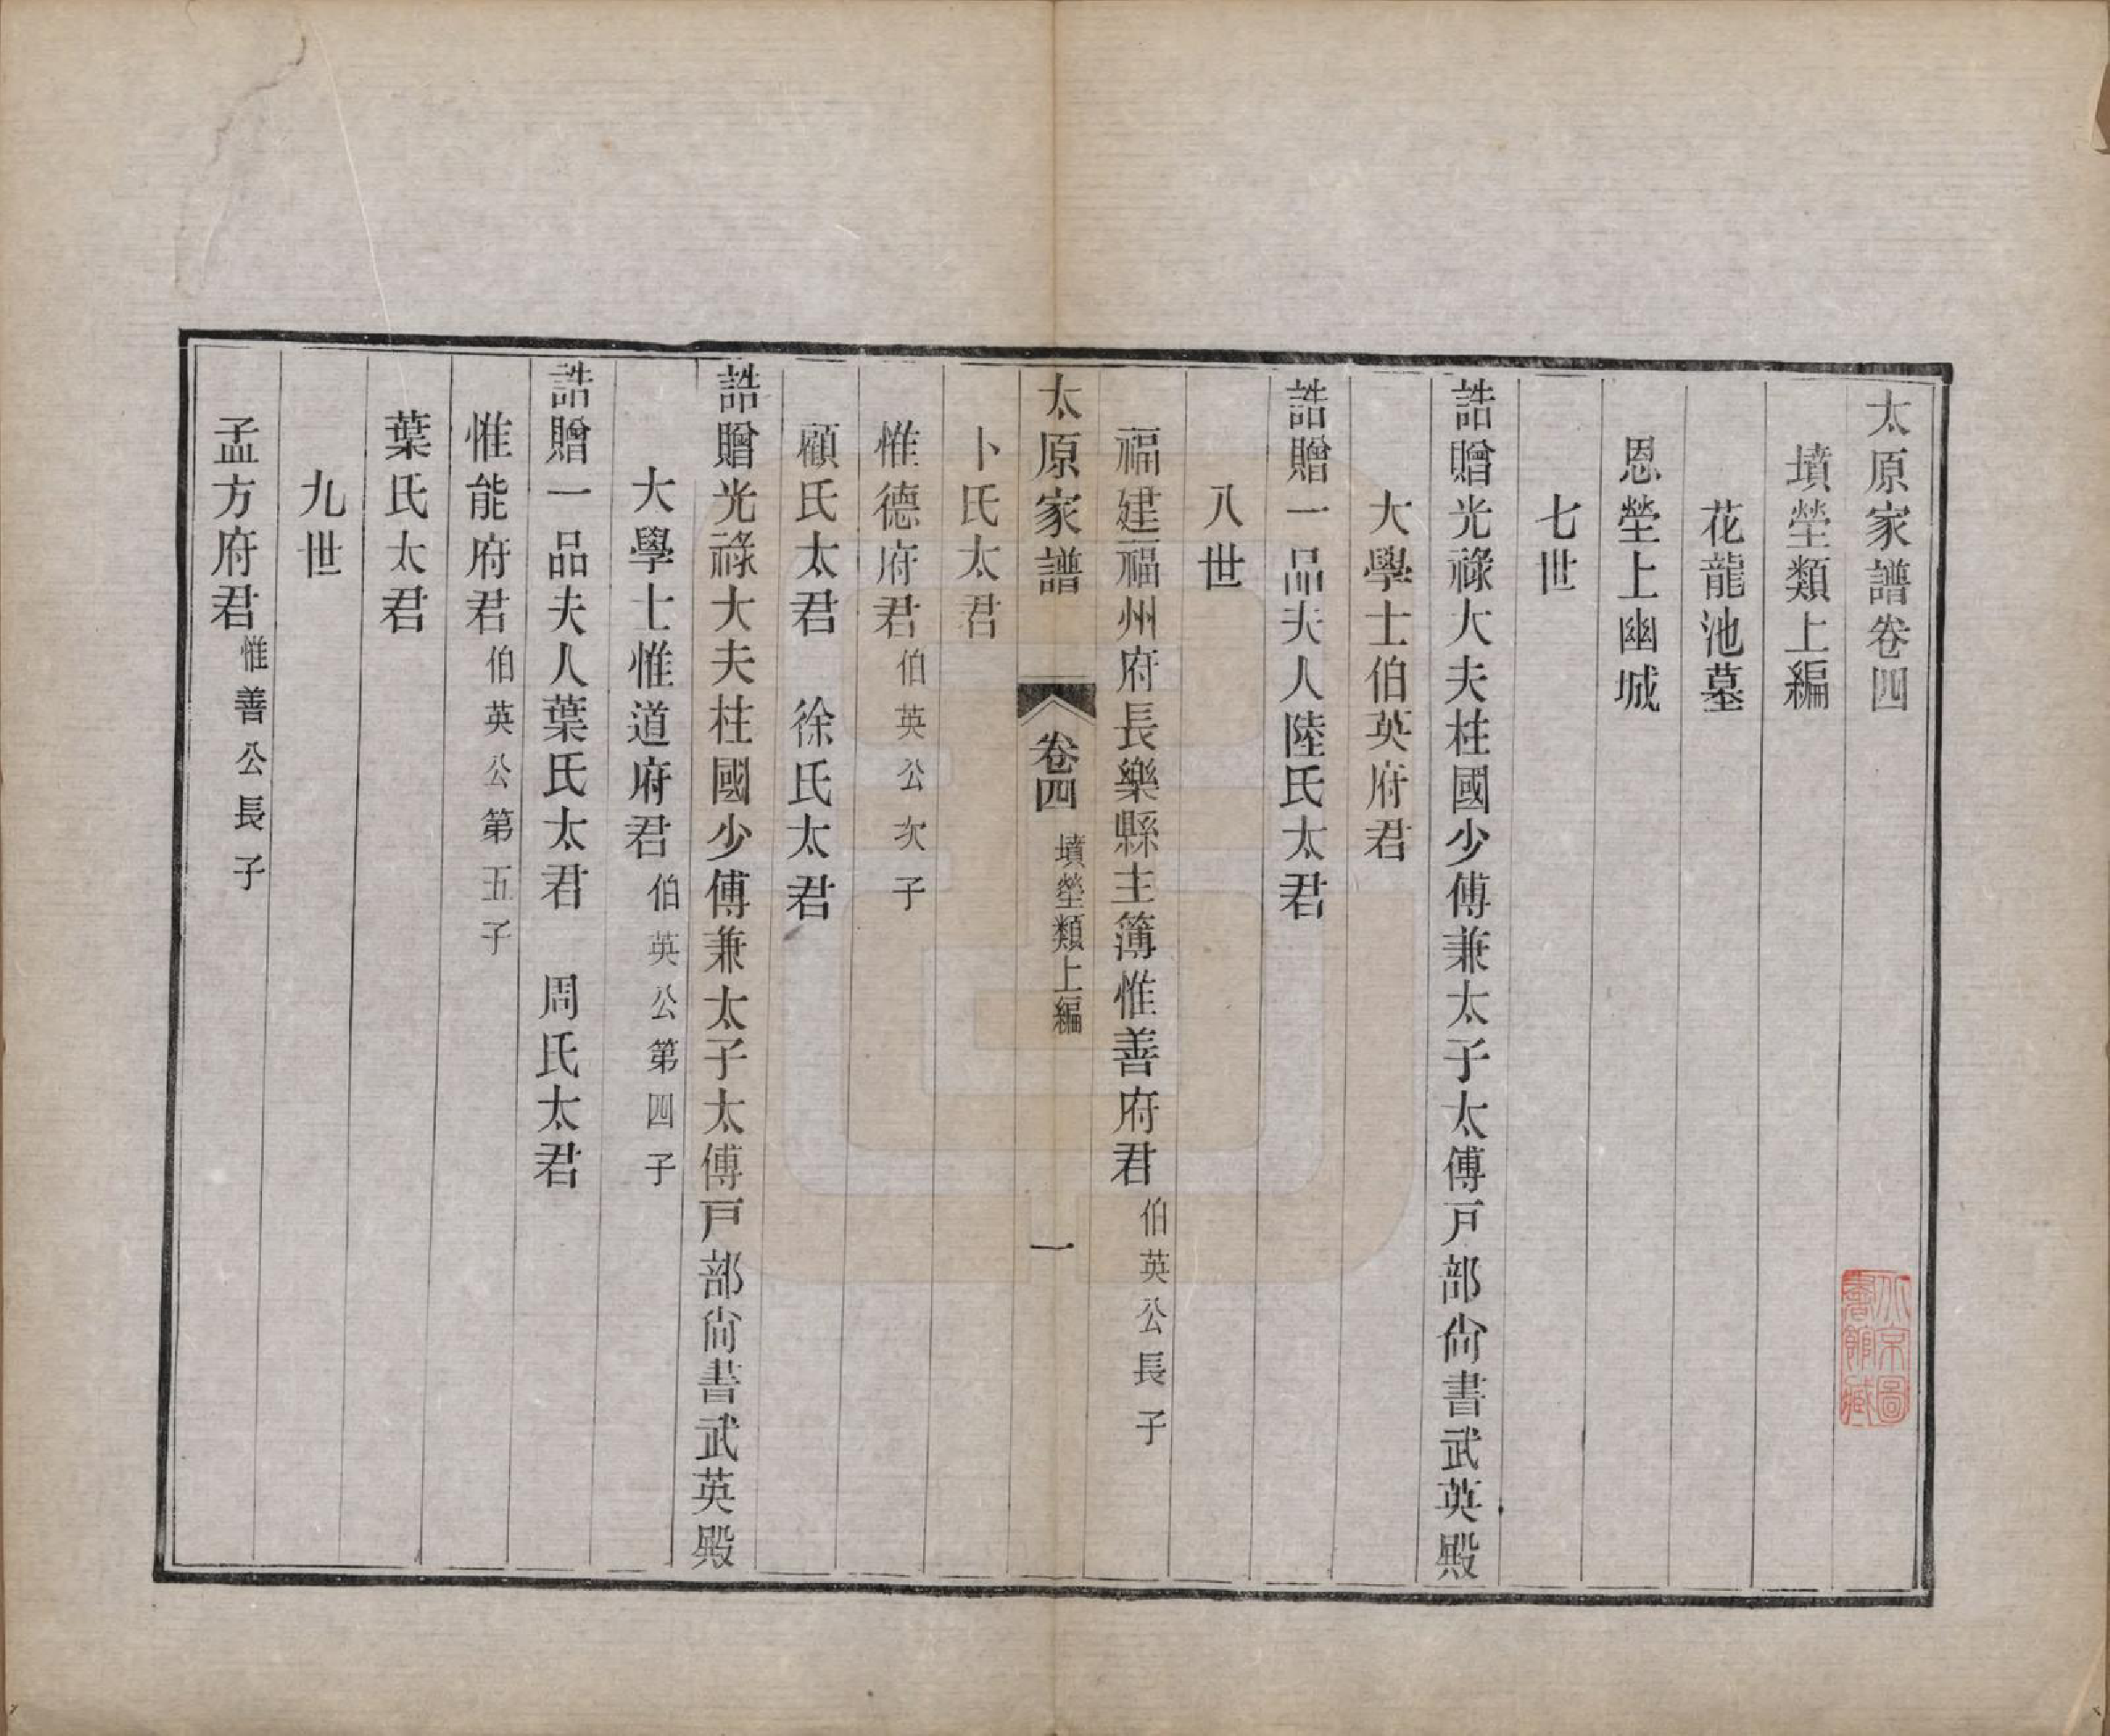 太原家譜卷四
墳塋類上編
花龍池墓
恩塋上幽城
七世
誥贈光祿大夫柱國少傅兼太子太傅戸部尙書武英殿
大學士伯英府君
誥贈一品夫人陸氏太君
八世
福建福州府長樂縣主簿惟善府君伯英公長子
太原家譜 卷四 墳塋類上編 一
卜氏太君
惟德府君伯英公次子
顧氏太君 徐氏太君
誥贈光祿大夫柱國少傅兼太子太傅戸部尙書武英殿
大學士惟道府君伯英公第四子
誥贈一品夫人葉氏太君 周氏太君
惟能府君伯英公第五子
葉氏太君
九世
孟方府君惟善公長子
北京圖
書館藏